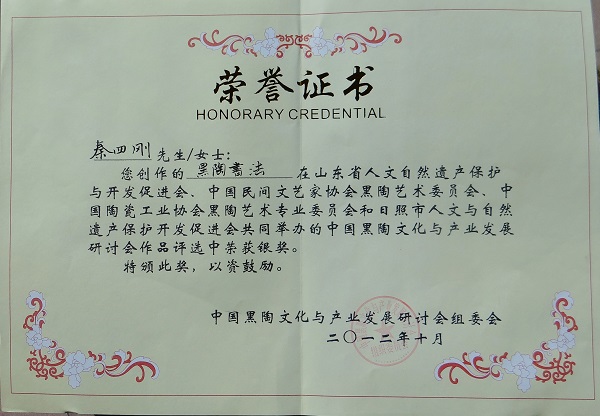 荣誉证书
HONORARY CREDENTIAL
秦四刚先生/女士：
您创作的黑陶书法在山东省人文自然遗产保护
与开发促进会、中国民间文艺家协会黑陶艺术委员会、中
国陶瓷工业协会黑陶艺术专业委员会和日照市人文与自然
遗产保护开发促进会共同举办的中国黑陶文化与产业发展
研讨会作品评选中荣获银奖。
特颁此奖，以资鼓励。
中国黑陶文化与产业发展研讨会组委会
二〇一二年十月